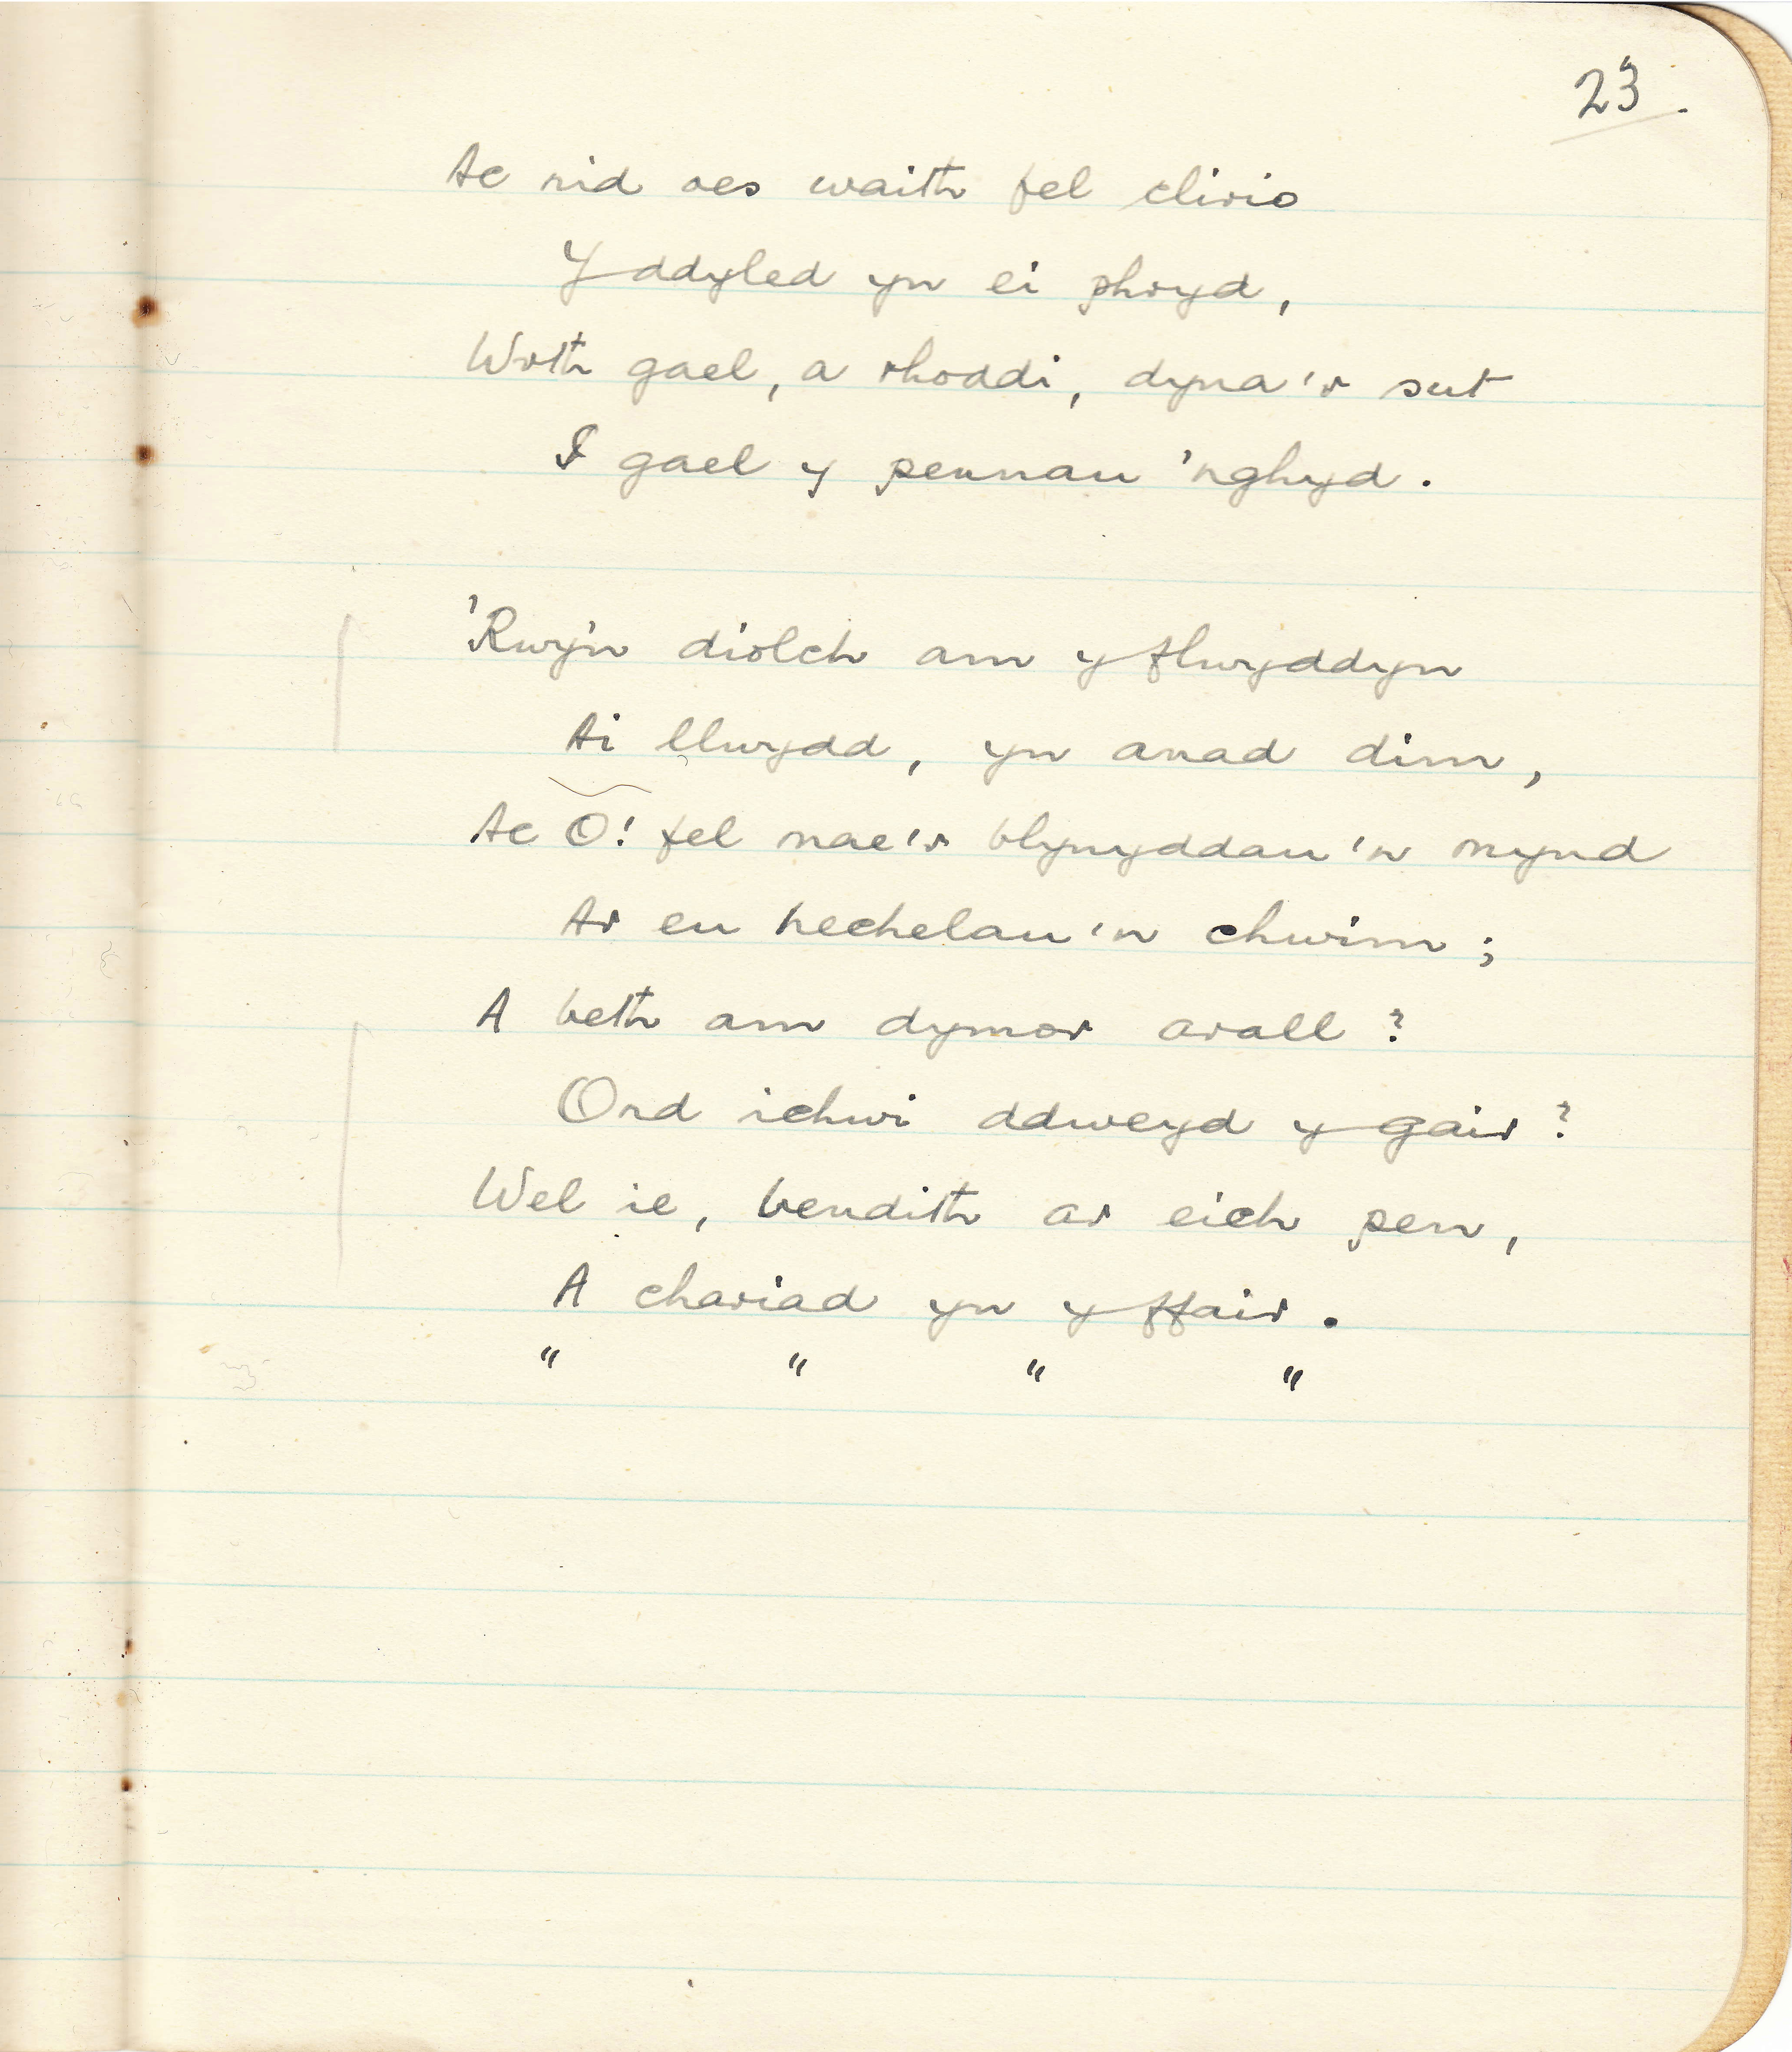 23.
Ac nid oes waith fel clirio
Y ddyled yn ei phryd,
Wrth gael, a rhoddi, dyna'r sut
I gael y pennau 'nghyd.
'Rwy'n diolch am y flwyddyn
Ai llwydd, yn anad dim,
Ac O! fel mae'r blynyddau'n mynd
Ar eu hechelau'n chwim;
A beth am dymor arall?
Ond ichwi ddweyd y gair?
Wel ie, bendith ar eich pen,
A chariad yn y ffair.
" " " "